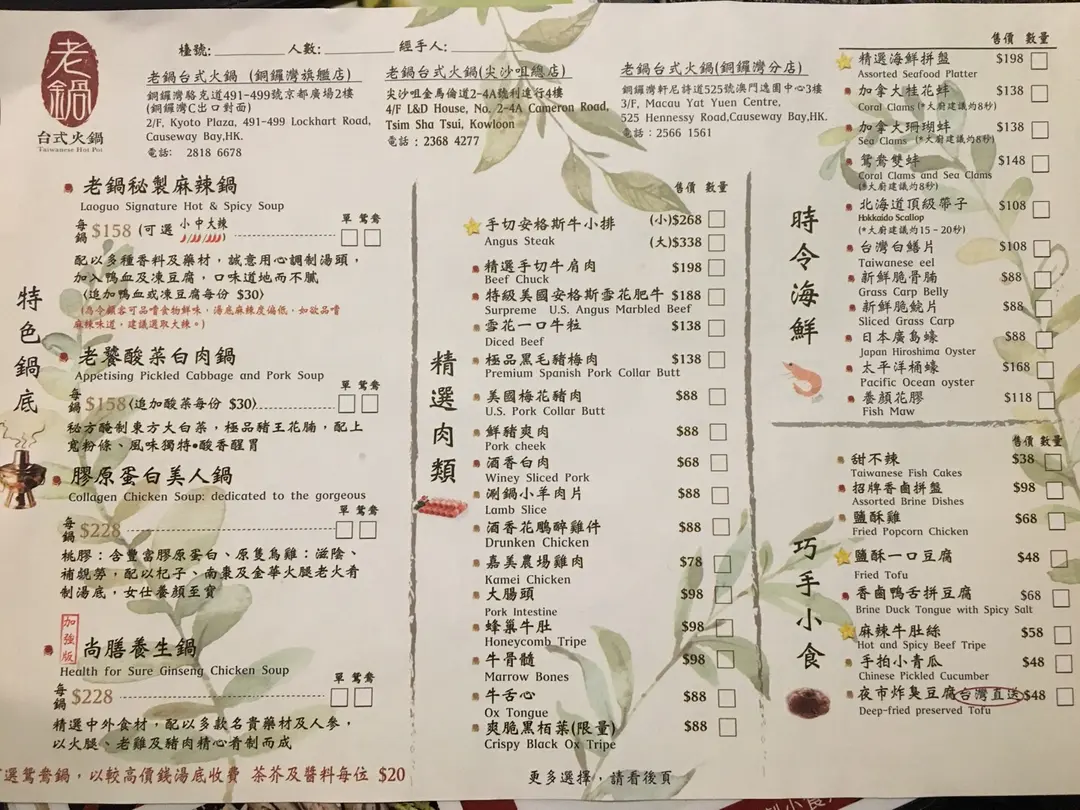 老鍋
台式火鍋
Taiwanese Hot Pot
檯號:________ 人數:________ 經手人:________
老鍋台式火鍋 (銅鑼灣旗艦店)
銅鑼灣駱克道491-499號京都廣場2樓
(銅鑼灣C出口對面)
2/F, Kyoto Plaza, 491-499 Lockhart Road,
Causeway Bay,HK.
電話: 2818 6678
老鍋台式火鍋(尖沙咀總店)
尖沙咀金馬倫道2-4A號利進行4樓
4/F L&D House, No. 2-4A Cameron Road,
Tsim Sha Tsui, Kowloon
電話：2368 4277
老鍋台式火鍋(銅鑼灣分店)
銅鑼灣軒尼詩道525號澳門逸園中心3樓
3/F, Macau Yat Yuen Centre,
525 Hennessy Road,Causeway Bay,HK.
電話：2566 1561
特色鍋底
老鍋秘製麻辣鍋
Laoguo Signature Hot & Spicy Soup
單 鴛鴦
每鍋 $158 (可選 小中大辣
配以多種香料及藥材，誠意用心調制湯頭，
加入鴨血及凍豆腐，口味道地而不膩
(追加鴨血或凍豆腐每份 $30)
(為令顧客可品嚐食物鮮味，湯底麻辣度偏低，如欲品嚐
麻辣味道，建議選取大辣。)
老饕酸菜白肉鍋
Appetising Pickled Cabbage and Pork Soup
單 鴛鴦
每鍋 $158(追加酸菜每份 $30)
秘方醃制東方大白菜，極品豬王花腩，配上
寬粉條、風味獨特•酸香醒胃
膠原蛋白美人鍋
Collagen Chicken Soup: dedicated to the gorgeous
單 鴛鴦
每鍋 $228
桃膠：含豐富膠原蛋白、原隻烏雞：滋陰、
補虧勞，配以杞子、南棗及金華火腿老火肴
制湯底，女仕養顏至寶
加強版
尚膳養生鍋
Health for Sure Ginseng Chicken Soup
單 鴛鴦
每鍋 $228
精選中外食材，配以多款名貴藥材及人参，
以火腿、老雞及豬肉精心肴制而成
選鴛鴦鍋，以較高價錢湯底收費 茶芥及醬料每位 $20
精選肉類
售價 數量
手切安格斯牛小排 (小)$268
Angus Steak (大)$338
精選手切牛肩肉 $198
Beef Chuck
特級美國安格斯雪花肥牛 $188
Surpreme U.S. Angus Marbled Beef
雪花一口牛粒 $138
Diced Beef
極品黑毛豬梅肉 $138
Premium Spanish Pork Collar Butt
美國梅花豬肉 $88
U.S. Pork Collar Butt
鮮豬爽肉 $88
Pork cheek
酒香白肉 $68
Winey Sliced Pork
涮鍋小羊肉片 $88
Lamb Slice
酒香花鵰醉雞件 $88
Drunken Chicken
嘉美農場雞肉 $78
Kamei Chicken
大腸頭 $98
Pork Intestine
蜂巢牛肚 $98
Honeycomb Tripe
牛骨髓 $98
Marrow Bones
牛舌心 $88
Ox Tongue
爽脆黑栢葉(限量) $88
Crispy Black Ox Tripe
更多選擇，請看後頁
時令海鮮
售價 數量
精選海鮮拼盤 $198
Assorted Seafood Platter
加拿大桂花蚌 $138
Coral Clams (*大廚建議灼8秒)
加拿大珊瑚蚌 $138
Sea Clams (*大廚建議灼8秒)
鴛鴦雙蚌 $148
Coral Clams and Sea Clams
(*大廚建議灼8秒)
北海道頂級帶子 $108
Hokkaido Scallop
(*大廚建議灼15－20秒)
台灣白鱔片 $108
Taiwanese eel
新鮮脆骨腩 $88
Grass Carp Belly
新鮮脆鯇片 $88
Sliced Grass Carp
日本廣島蠔 $88
Japan Hiroshima Oyster
太平洋桶蠔 $168
Pacific Ocean oyster
養顏花膠 $118
Fish Maw
巧手小食
售價 數量
甜不辣 $38
Taiwanese Fish Cakes
招牌香鹵拼盤 $98
Assorted Brine Dishes
鹽酥雞 $68
Fried Popcorn Chicken
鹽酥一口豆腐 $48
Fried Tofu
香鹵鴨舌拼豆腐 $68
Brine Duck Tongue with Spicy Salt
麻辣牛肚絲 $58
Hot and Spicy Beef Tripe
手拍小青瓜 $48
Chinese Pickled Cucumber
夜市炸臭豆腐 台灣直送 $48
Deep-fried preserved Tofu